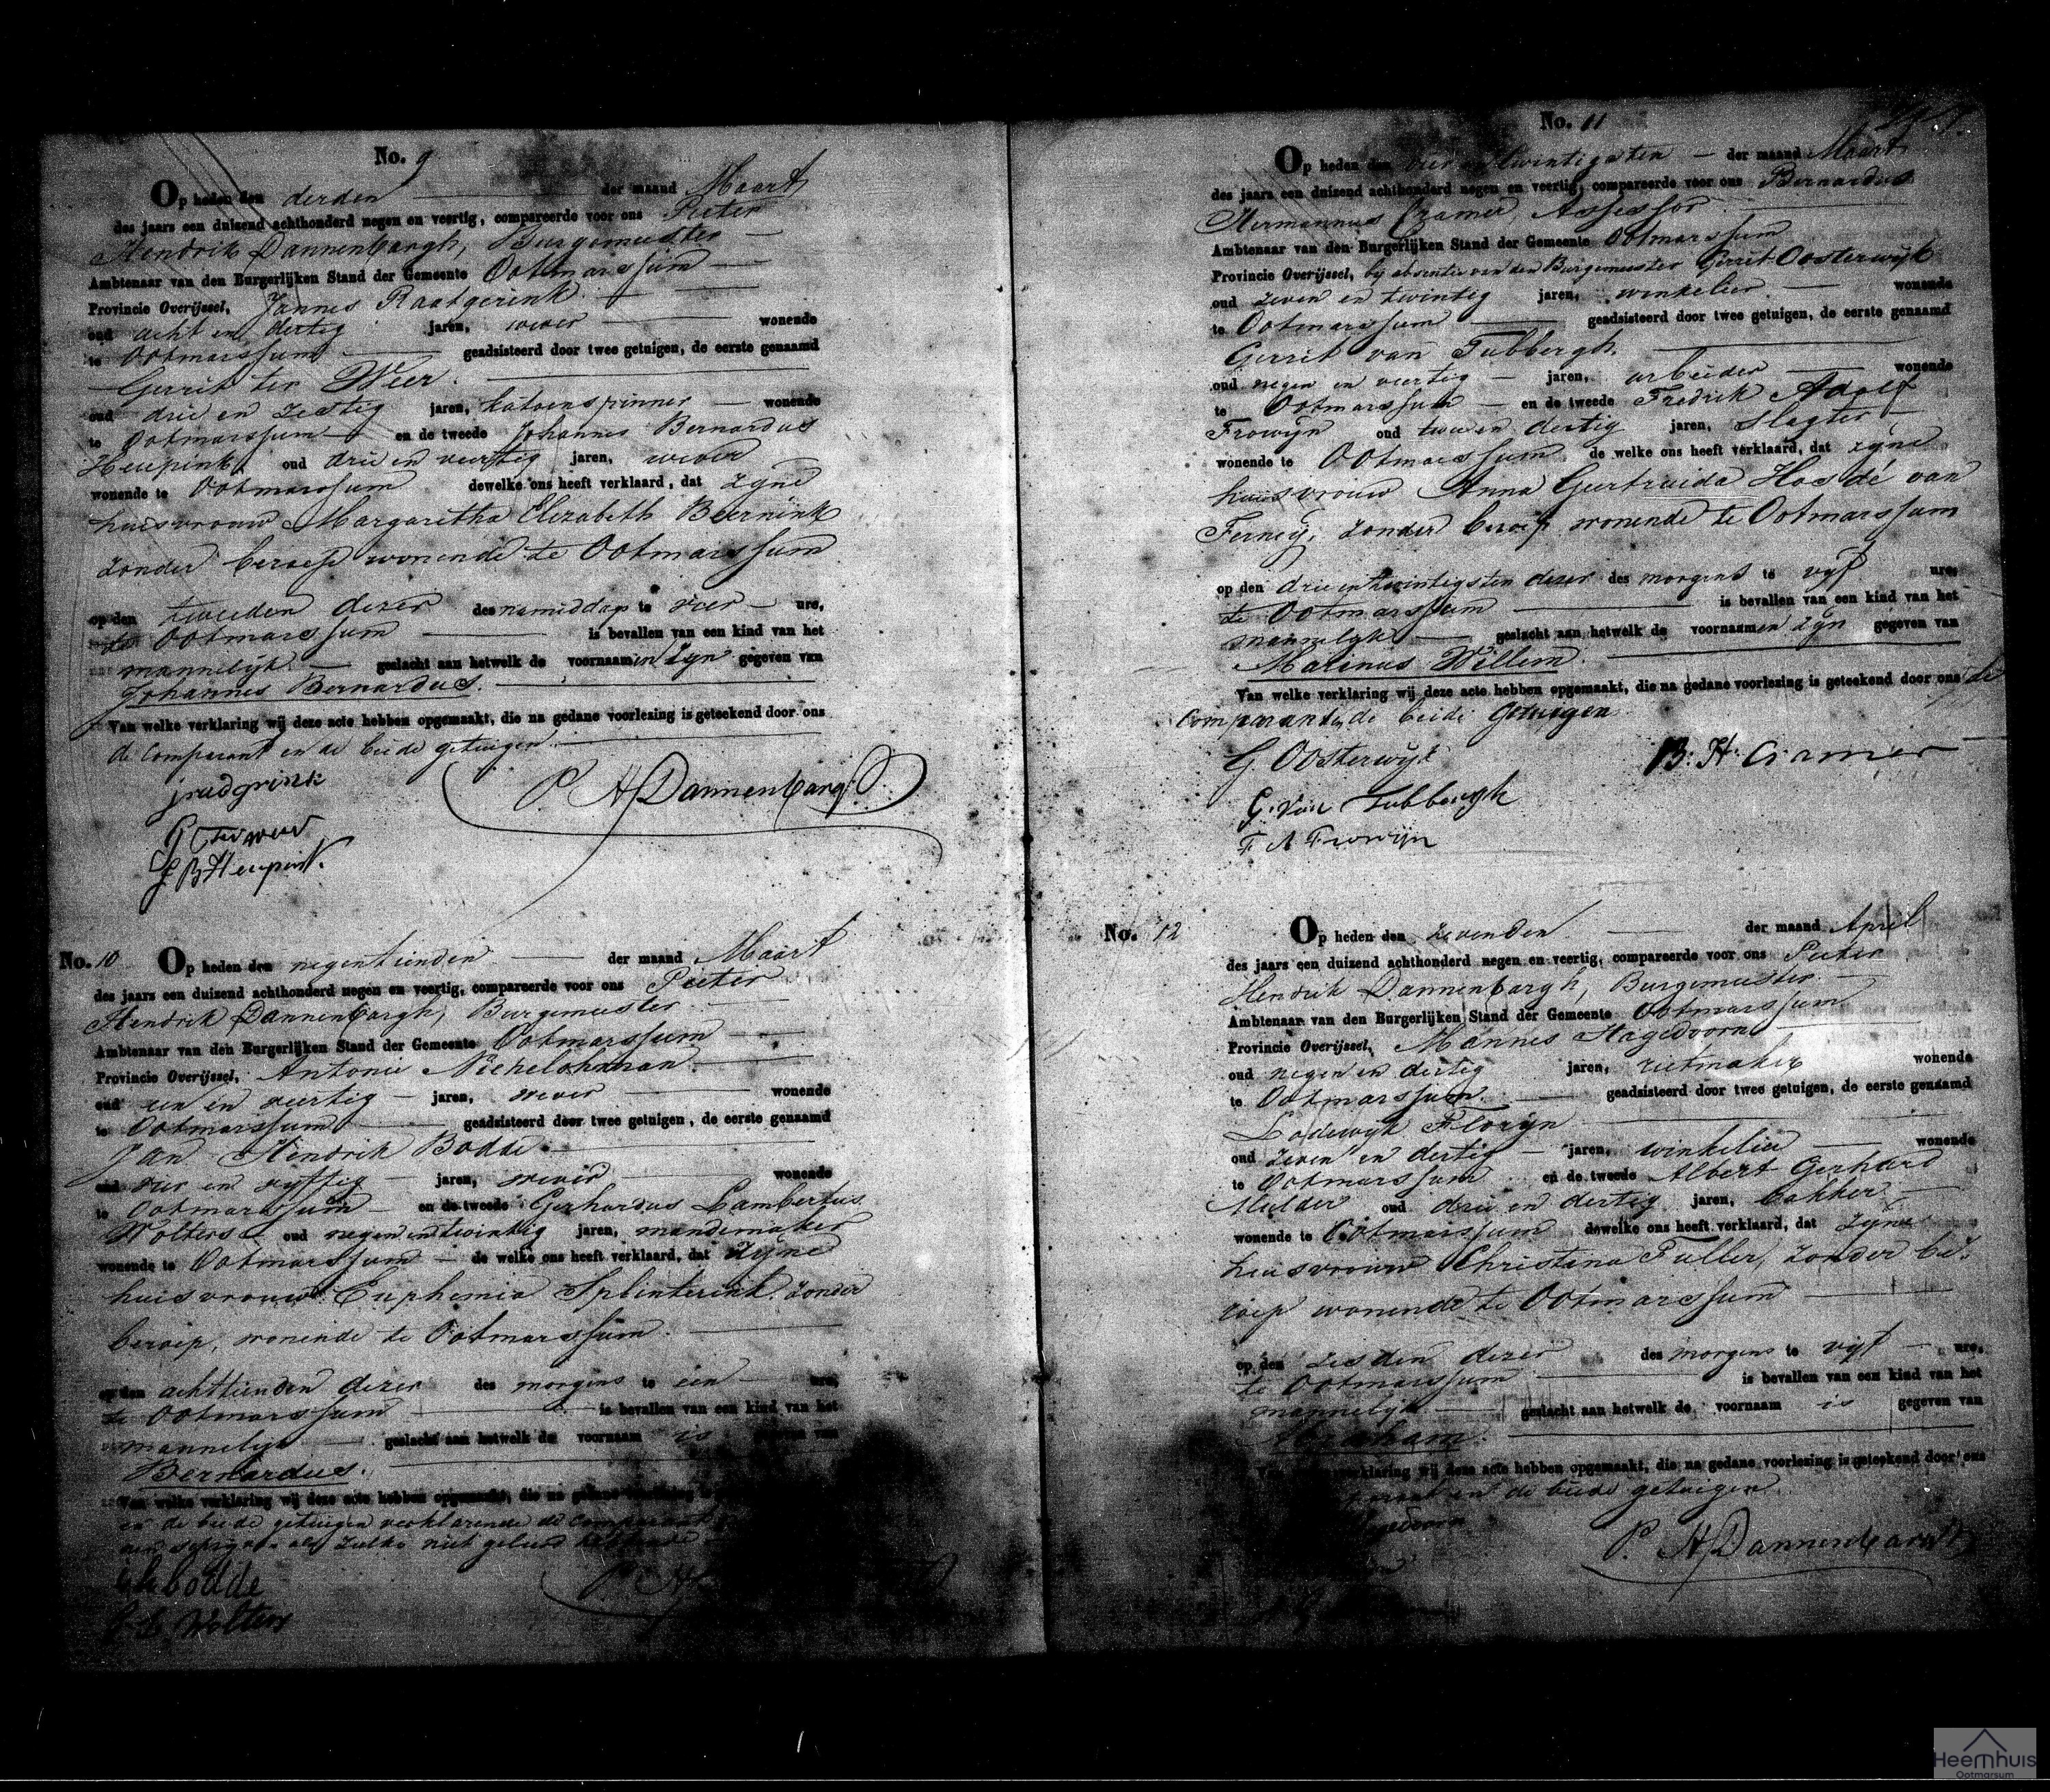 No. 9
Op heden den derden der maand Maart
des jaars een duizend achthonderd negen en veertig, compareerde voor ons Pieter
Hendrik Dannenbargh, Burgemeester
Ambtenaar van den Burgerlijken Stand der Gemeente Ootmarssum
Provincie Overijssel, Jannes Raatgerink
oud acht en dertig jaren, wever wonende
te Ootmarssum geadsisteerd door twee getuigen, de eerste genaamd
Gerrit ter Weer.
oud drie en zestig jaren, katoenspinner wonende
te Ootmarssum en de tweede Johannes Bernardus
Heupink, oud drie en veertig jaren, wever
wonende te Ootmarssum dewelke ons heeft verklaard, dat zyne
huisvrouw Margaretha Elizabeth Beernink
zonder beroep wonende te Ootmarssum
op den tweeden dezer des namiddags te vier ure,
te Ootmarssum is bevallen van een kind van het
mannelijk geslacht aan hetwelk de voornaamen zyn gegeven van
Johannes Bernardus.
Van welke verklaring wij deze acte hebben opgemaakt, die na gedane voorlezing is geteekend door ons
de comparant en de beide getuigen.
P. H Dannenbargh
G ter weer
J B Heupink.
No. 10 Op heden den negentienden der maand Maart
des jaars een duizend achthonderd negen en veertig, compareerde voor ons Pieter
Hendrik Dannenbargh, Burgemeester
Ambtenaar van den Burgerlijken Stand der Gemeente Ootmarssum
Provincie Overijssel, Antonie
oud een en veertig jaren, wever wonende
te Ootmarssum geadsisteerd door twee getuigen, de eerste genaamd
Jan Hendrik Bodde
oud vier en vyftig jaren, wever wonende
te Ootmarssum en de tweede Gerhardus Lambertus
Wolters oud negen en twintig jaren, mandemaker
wonende te Ootmarssum de welke ons heeft verklaard, dat zyne
huisvrouw Euphemia Splinterink, zonder
beroep, wonende te Ootmarssum.
op den achttienden dezer des morgens te een ure,
te Ootmarssum is bevallen van een kind van het
mannelyk geslacht aan hetwelk de voornaam is gegeven van
Bernardus.
Van welke verklaring wij deze acte hebben opgemaakt, die na gedane
en de beide getuigen verklarende de comparant
als zulks niet geleerd hebbende
P. H
bodde
G. L. Wolters
No. 11
Op heden den vier en twintigsten der maand Maart
des jaars een duizend achthonderd negen en veertig, compareerde voor ons Bernardus
Hermannus Cramer, Assessor
Ambtenaar van den Burgerlijken Stand der Gemeente Ootmarssum
Provincie Overijssel, by absentie van den Burgemeester Gerrit Oosterwijk
oud zeven en twintig jaren, winkelier wonende
te Ootmarssum geadsisteerd door twee getuigen, de eerste genaamd
Gerrit van Tubbergh.
oud negen en veertig jaren, arbeider wonende
te Ootmarssum en de tweede Fredrik Adolf
Frowyn oud twee en dertig jaren, slagter
wonende te Ootmarssum, de welke ons heeft verklaard, dat zyne
huisvrouw Anna Geertruida Hosdé van
Ferney, zonder beroep wonende te Ootmarssum
op den drie en twintigsten dezer des morgens te vyf ure,
te Ootmarssum is bevallen van een kind van het
mannelyk geslacht aan hetwelk de voornaamen zyn gegeven van
Marinus Willem.
Van welke verklaring wij deze acte hebben opgemaakt, die na gedane voorlezing is geteekend door ons de
comparant en de beide getuigen
G. Oosterwijk B. H. Cramer
G. van Tubbergh
F A Frowijn
No. 12 Op heden den zevenden der maand April
des jaars een duizend achthonderd negen en veertig, compareerde voor ons Pieter
Hendrik Dannenbargh, Burgemeester
Ambtenaar van den Burgerlijken Stand der Gemeente Ootmarssum
Provincie Overijssel, Mannes Hagedoorn
oud negen en dertig jaren, rietmaker wonende
te Ootmarssum geadsisteerd door twee getuigen, de eerste genaamd
Lodewyk Floryn
oud zeven en dertig jaren, winkelier wonende
te Ootmarssum en de tweede Albert Gerhard
Mulder oud drie en dertig jaren, bakker
wonende te Ootmarssum dewelke ons heeft verklaard, dat zyne
huisvrouw Christina Fuller, zonder be-
roep wonende te Ootmarssum
op den zesden dezer des morgens te vyf ure,
te Ootmarssum is bevallen van een kind van het
mannelyk geslacht aan hetwelk de voornaam is gegeven van
Abraham.
Van welke verklaring wij deze acte hebben opgemaakt, die na gedane voorlezing is geteekend door ons
en de beide getuigen.
P. H Dannenbargh
Heemhuis
Ootmarsum